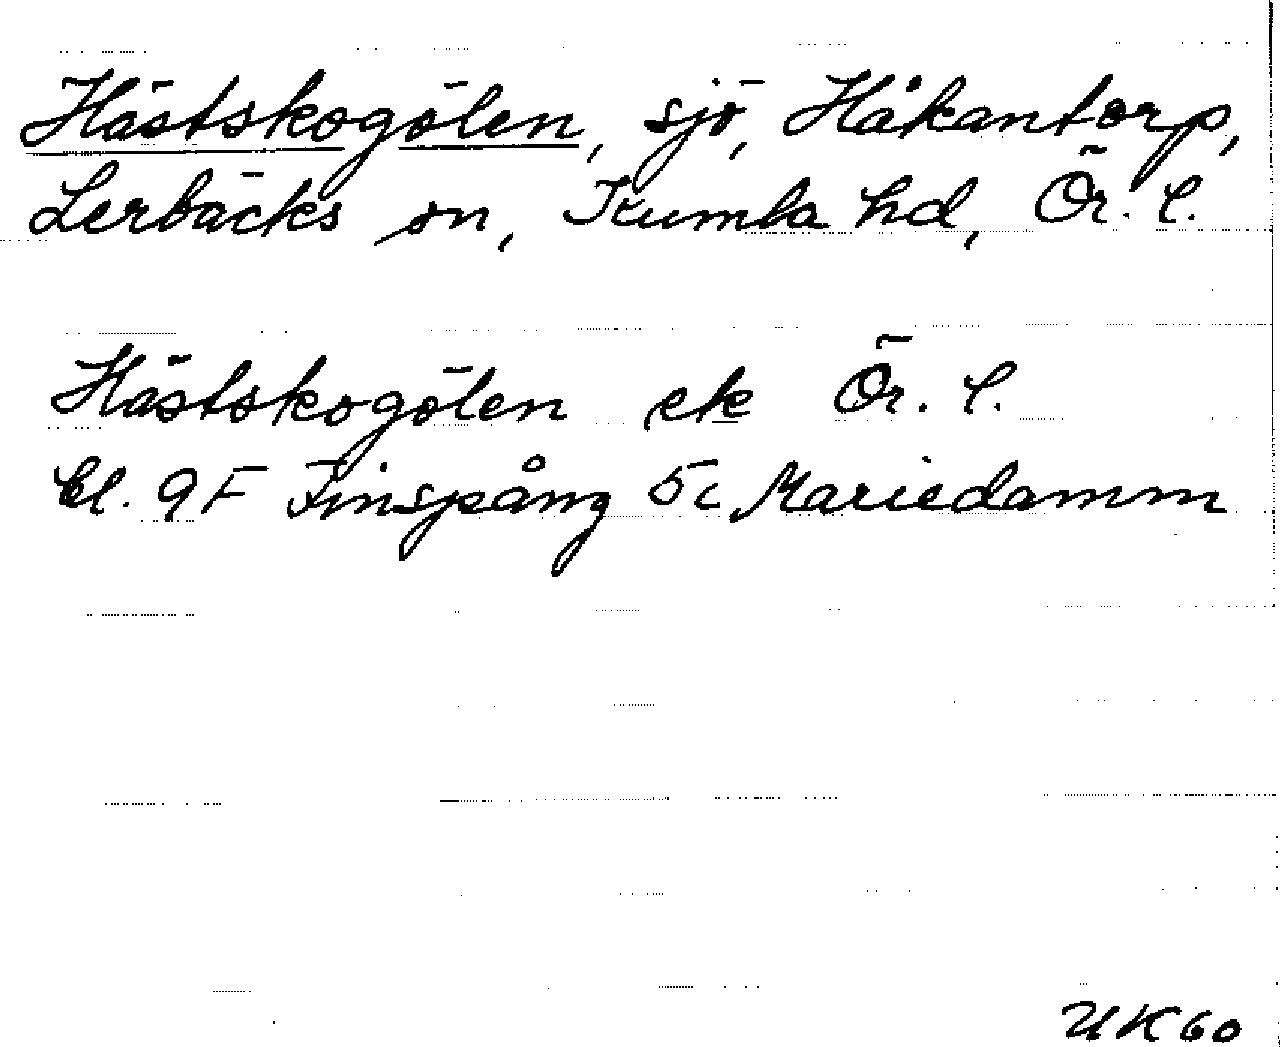 Hästskogölen, sjö, Håkantorp,
Lerbäcks sn, Kumla hd, Ör. l.
Hästskogölen ek Ör. l.
bl. 9F Finspång 5c Mariedamm
UK60